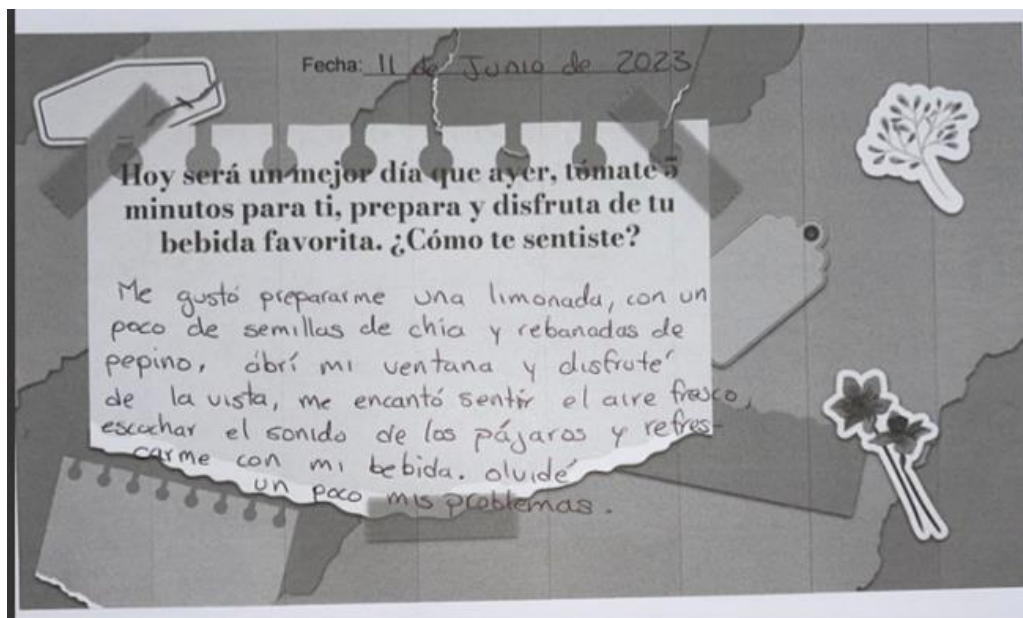 Fecha: 11 de Junio de 2023
Hoy será un mejor día que ayer, tómate 5
minutos para ti, prepara y disfruta de tu
bebida favorita. ¿Cómo te sentiste?
Me gustó prepararme una limonada, con un
poco de semillas de chia y rebanadas de
pepino, ábrí mi ventana y disfruté
de la vista, me encantó sentir el aire fresco,
escuchar el sonido de los pájaros y refres-
carme con mi bebida. olvidé
un poco mis problemas.